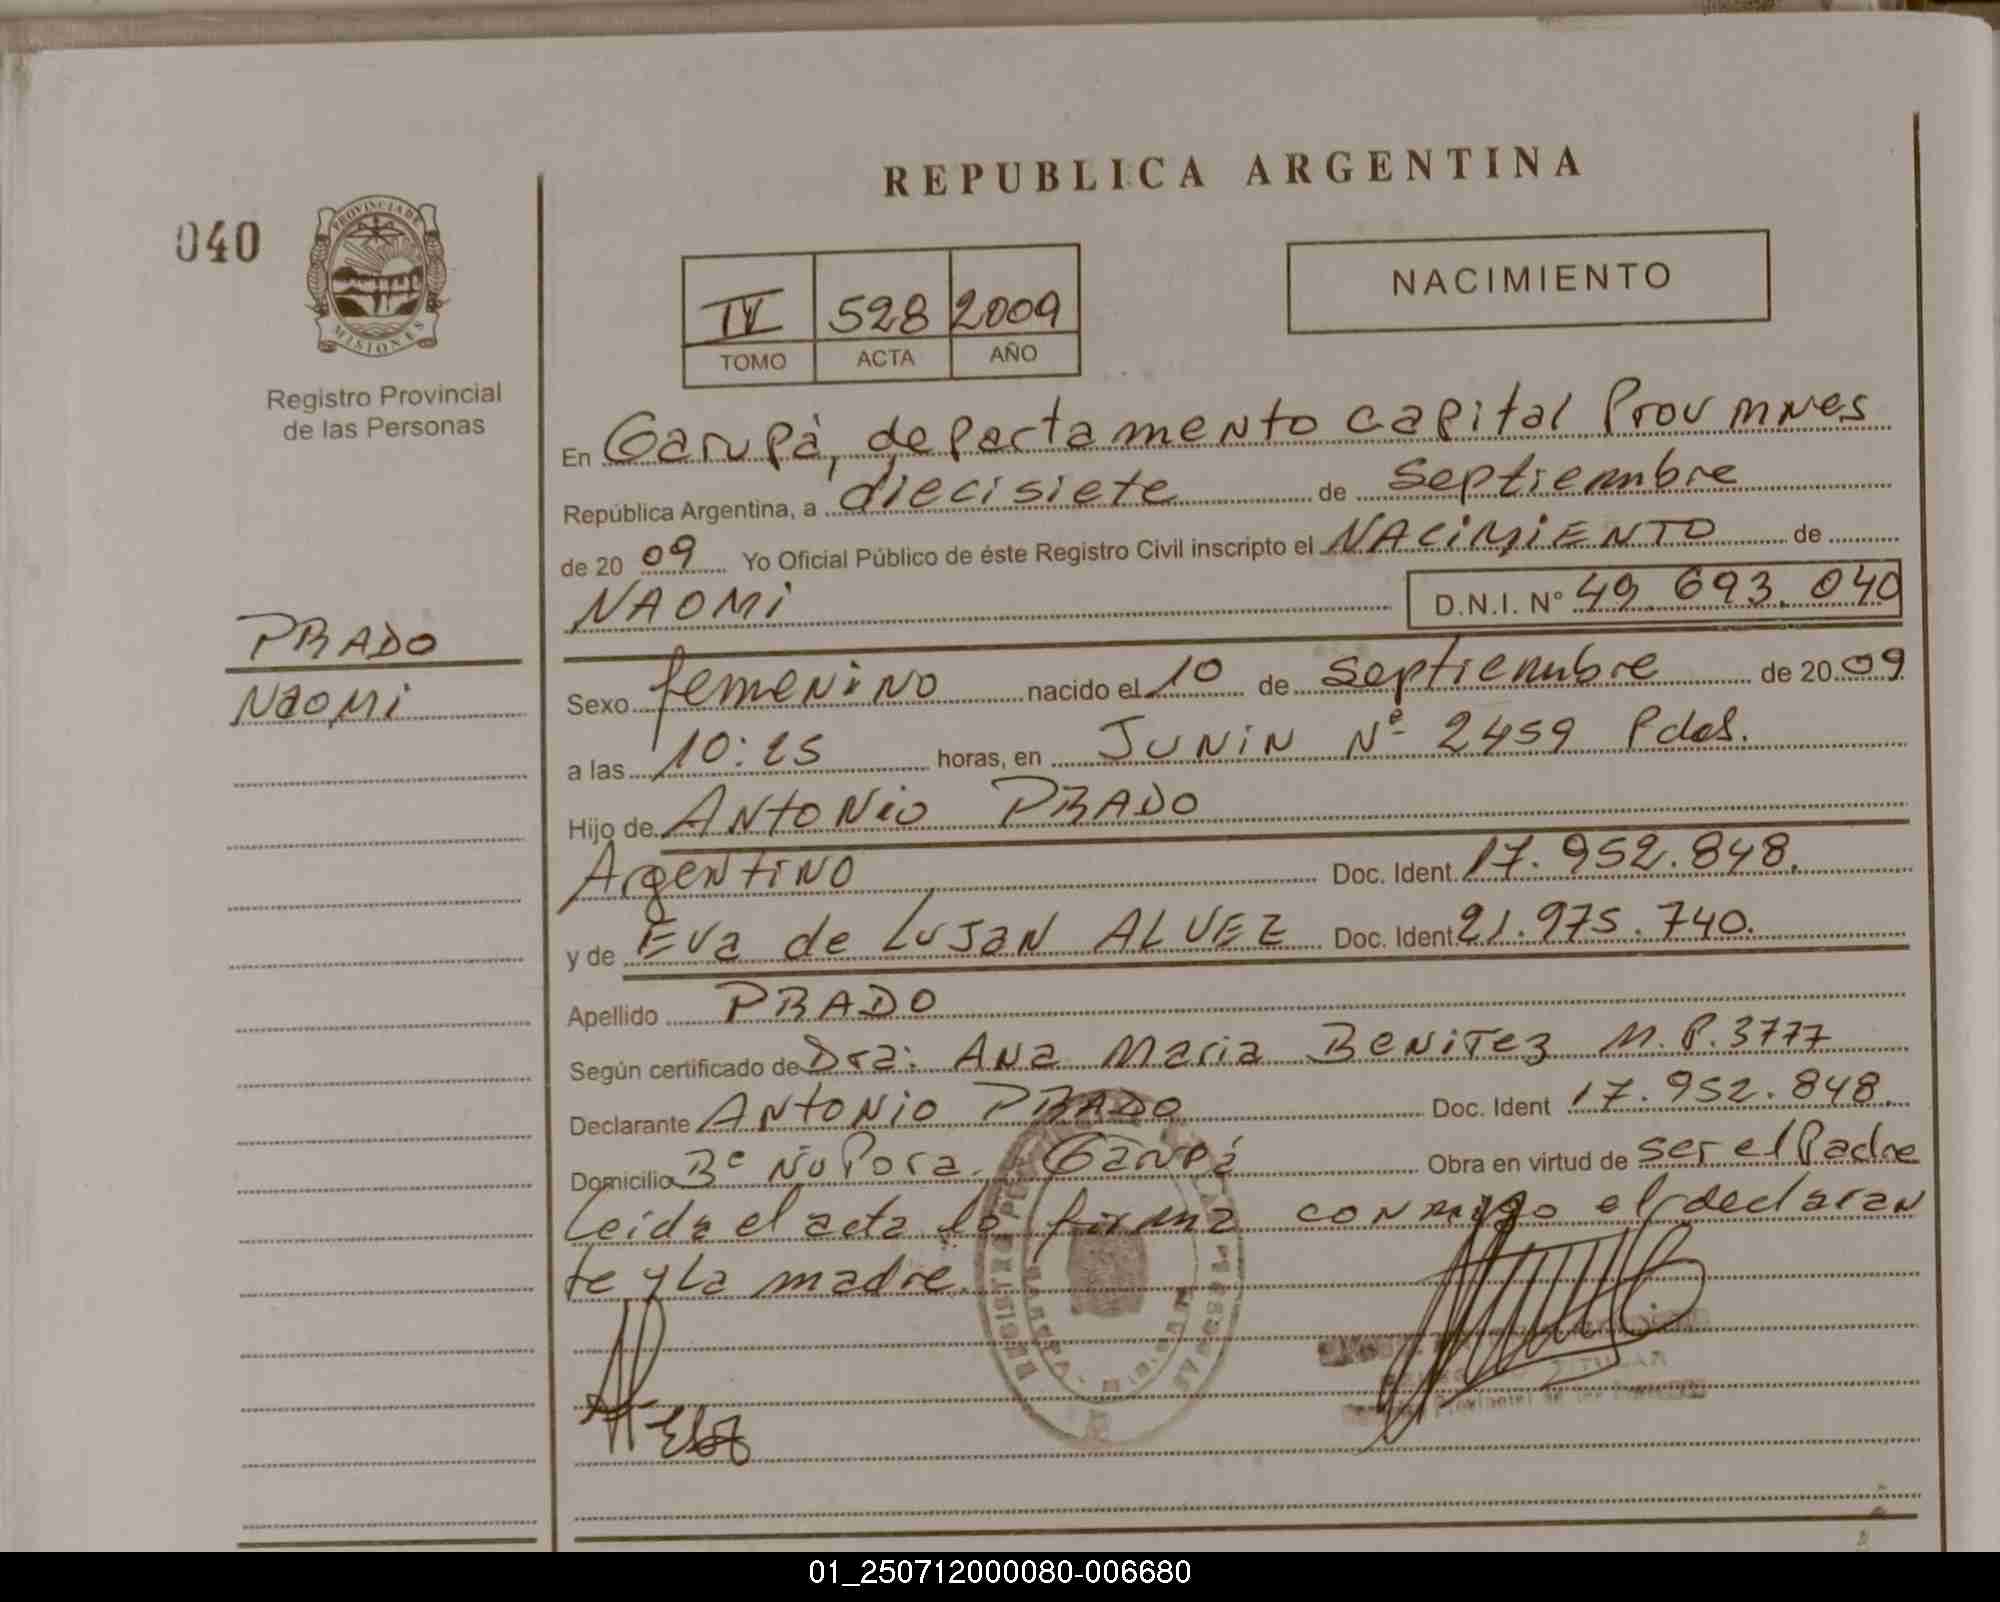 REPUBLICA ARGENTINA
040
PROVINCIA DE
MISIONES
NACIMIENTO
IV 528 2009
TOMO ACTA AÑO
Registro Provincial
de las Personas
En Garupà, departamento capital Prov mnes
República Argentina, a diecisiete de septiembre
de 20 09 Yo Oficial Público de éste Registro Civil inscripto el NACIMIENTO de
NAOMi D.N.I. Nº 49.693.040
PRADO
NaoMi
Sexo femeNiNO nacido el 10 de septiembre de 20 09
a las 10:25 horas, en JUNiN Nº 2459 Pdas.
Hijo de ANtoNio PRADO
ArgentiNO Doc. Ident. 17.952.848.
y de Eva de LuJaN ALVEZ Doc. Ident. 21.975.740.
Apellido PRADO
Según certificado de Dra: ANa Maria BeNiTez M.P.3777
Declarante ANtoNio PRADO Doc. Ident 17.952.848.
Domicilio Bº Ñu Pora. Garupá Obra en virtud de ser el Padre
Leida el acta la firma conmigo el declaran
te y La madre.
TITULAR
Provincial de las
01_250712000080-006680